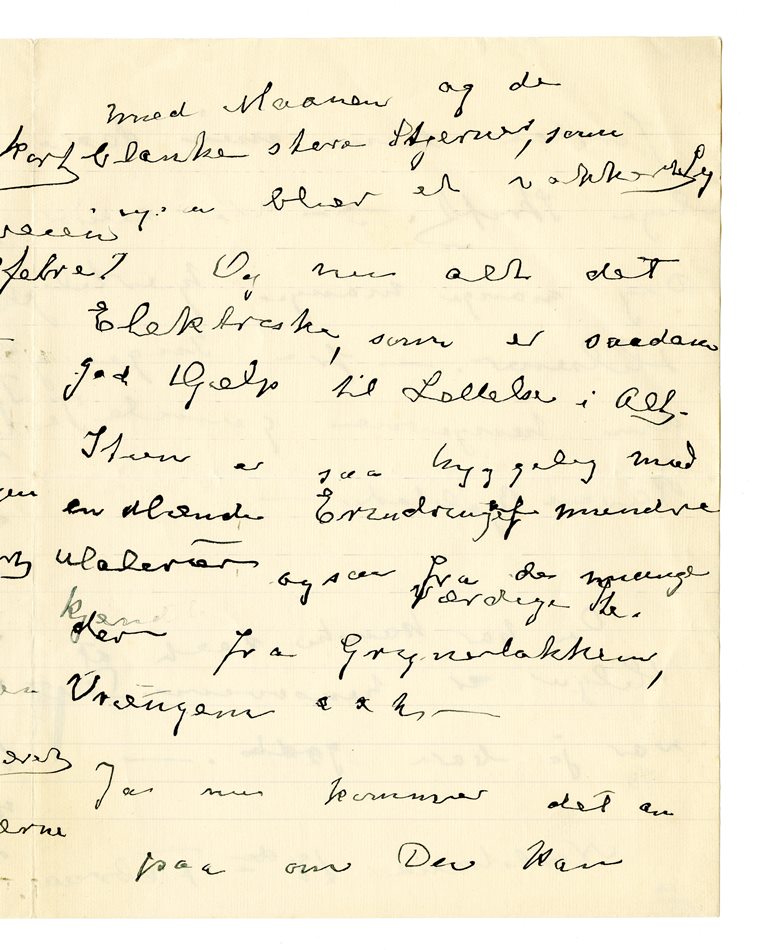 med Maanen og de
blanke store Stjerner, som
ogsaa bliver et vakkert Sy
Og nu alt det
Elektriske, som er saadan
god Hjælp til Lettelse i Alt.
Stuen er saa hyggelig med
endnu Erindringer mindre
Malerier ogsaa fra de mange
værdige Ste-
der fra Grynerløkken,
Vrængen o s v.
Ja nu kommer det an
paa om Du kan